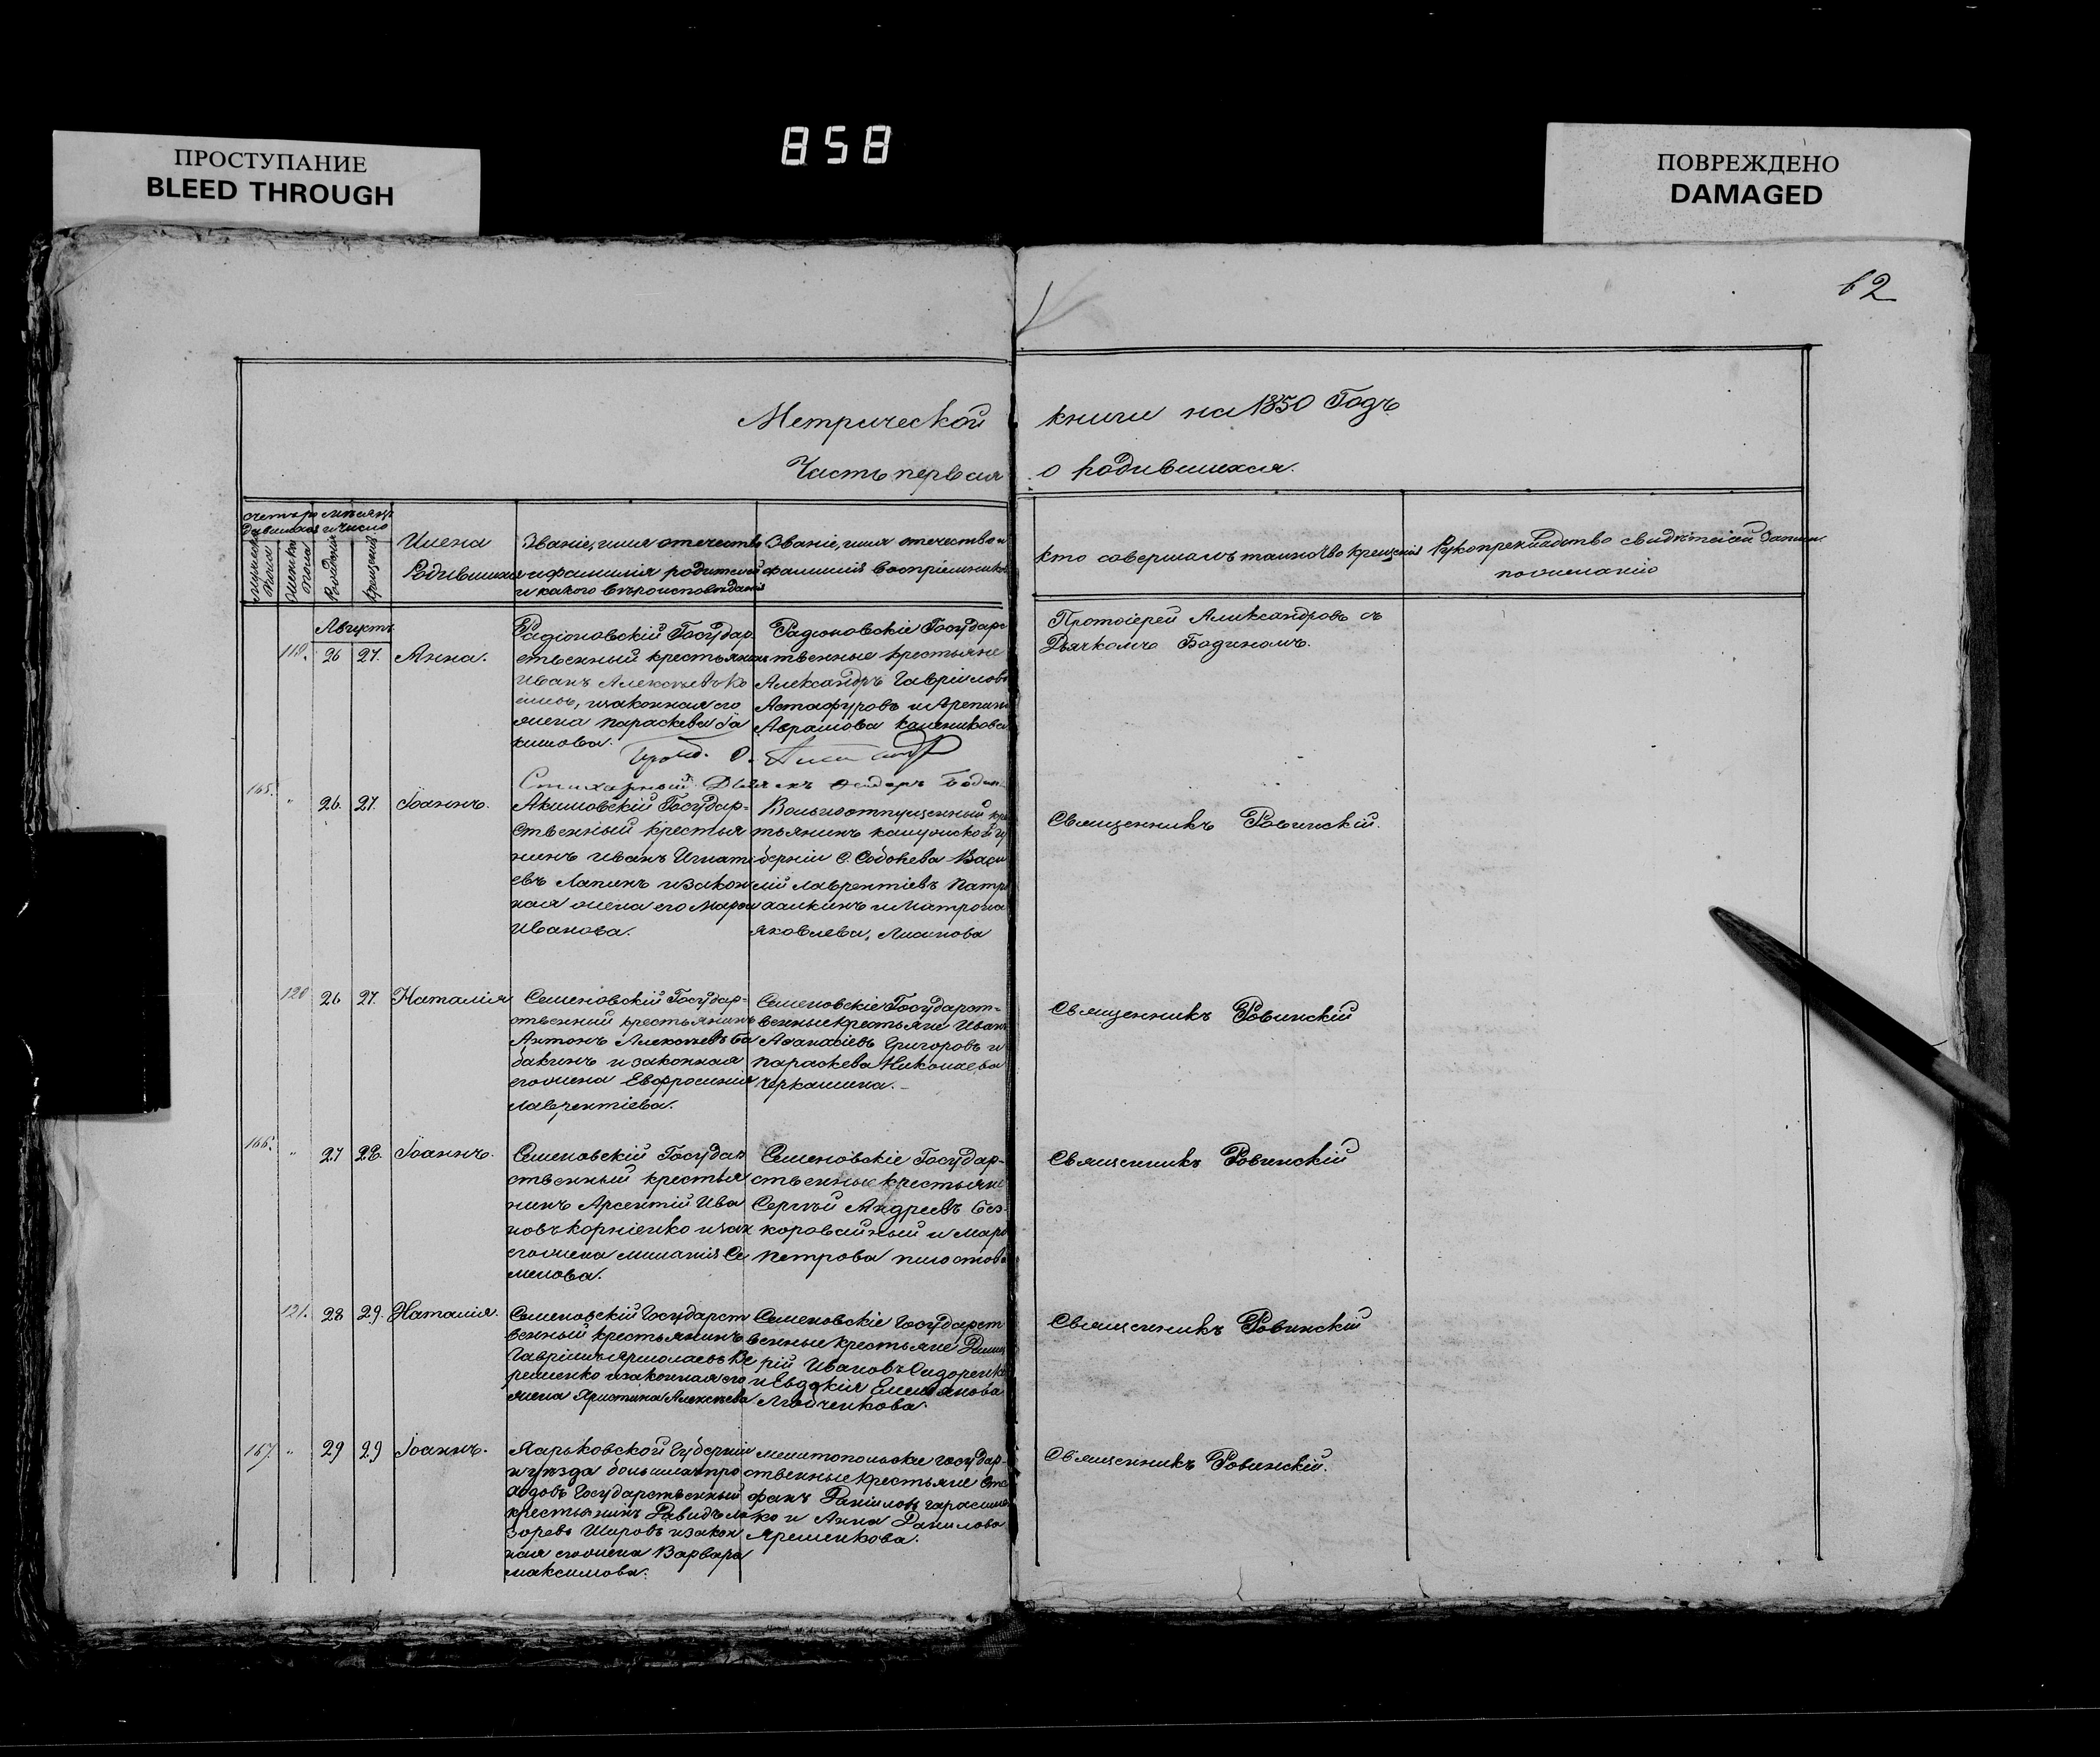 858
ПРОСТУПАНИЕ
BLEED THROUGH
ПОВРЕЖДЕНО
DAMAGED
62
Метрической книги на 1850 Годъ
Часть первая о родившихся.
Имена
Родившихся
Званіе, имя отечество
и фамилія родителей
и какого вѣроисповѣданія
Званіе, имя отечество и
фамилія воспріемниковъ
кто совершалъ таинство крещенія
Рукоприкладство свидѣтелей записи
по желанію
Августъ
26 27. Анна.
Радіоновскій Государ
ственный крестьянинъ
Иванъ Алексѣевъ Ко
законная его
жена Параскева Іа
кимова.
Радіоновскіе Государс
твенные крестьяне
Александръ Гавріиловъ
Астафуровъ и
Аврамова
Протоіерей Александровъ съ
Дьячкомъ Бодиномъ.
Стихарный Дьячекъ Бодин
165. " 26. 27. Іоаннъ.
Акимовскій Государ=
ственный крестья
нинъ Иванъ Игнать
евъ Лапинъ и закон
ная жена его Марѳа
Иванова.
Вольноотпущенный кре
стьянинъ
берніи С. Васи
лій Лаврентіевъ
и Матрона
Яковлева,
Священникъ Ровинскій.
120 26 27. Наталія
Семеновскій Государ=
ственный крестьянинъ
Антонъ Алексѣевъ Ба
бакинъ и законная
его жена Евфросинія
Лаврентіева.
Семеновскіе Государст=
венные крестьяне Иванъ
Аѳанасіевъ Григоровъ и
Параскева Николаева
Черкашина.
Священникъ Ровинскій
166. " 27 28. Іоаннъ.
Семеновскій Государ
ственный крестья
нинъ Арсентій Ива
новъ Корніенко и зак
его жена Меланія Се
менова.
Семеновскіе Государ=
ственные крестьяне
Сергѣй Андреевъ Без=
коровайный и Марѳ
Петрова
Священникъ Ровинскій
121. 28 29. Наталія.
Семеновскій Государст
венный крестьянинъ
Гавріилъ Ермолаевъ Ве
ременко и законная его
жена Христина Алексѣева
Семеновскіе Государст
венные крестьяне Дими
трій Ивановъ Сидоренко
и Евдокія Емельянова
Священникъ Ровинскій
167. " 29 29 Іоаннъ.
Харьковской Губерніи
и уѣзда
Государственный
крестьянинъ Давидъ Ла
заревъ Шаровъ и закон
ная его жена Варвара
Максимова.
Мелитопольскіе Государ=
ственные крестьяне Сте
фанъ Даніиловъ Гарасимен
ко и Анна Данилова
Яременкова.
Священникъ Ровинскій.